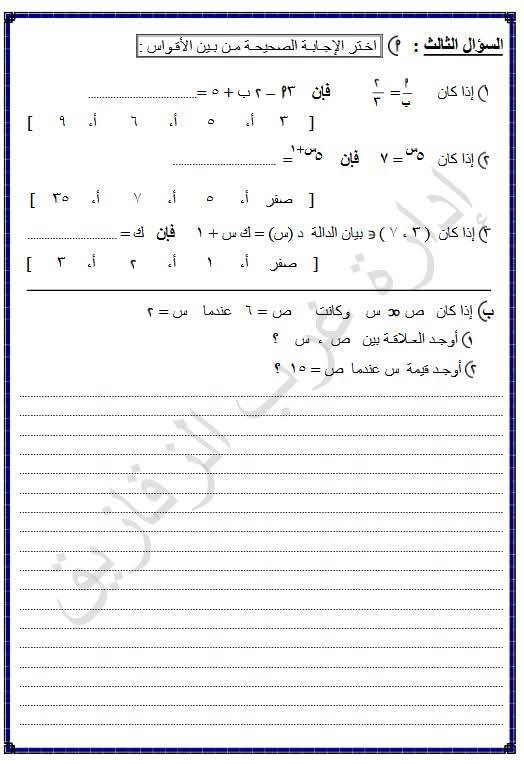 السؤال الثالث : P) اختر الإجابة الصحيحة من بين الأقواس :
١) إذا كان P/ب = ٢/٣ فإن ٣P – ٢ ب + ٥ = ..............................
[ ٣ أ، ٥ أ، ٦ أ، ٩ ]
٢) إذا كان ٥^س = ٧ فإن ٥^س+١ = ..............................
[ صفر أ، ٥ أ، ٧ أ، ٣٥ ]
٣) إذا كان ( ٣ ، ٧ ) ∈ بيان الدالة د (س) = ك س + ١ فإن ك = ..............................
[ صفر أ، ١ أ، ٢ أ، ٣ ]
ب) إذا كان ص ∝ س وكانت ص = ٦ عندما س = ٢
١) أوجد العلاقة بين ص ، س ؟
٢) أوجد قيمة س عندما ص = ١٥ ؟
إدارة غرب الزقازيق